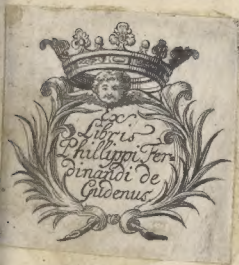 Ex
Libris
Phillippi Fer-
dinandi de
Gudenus